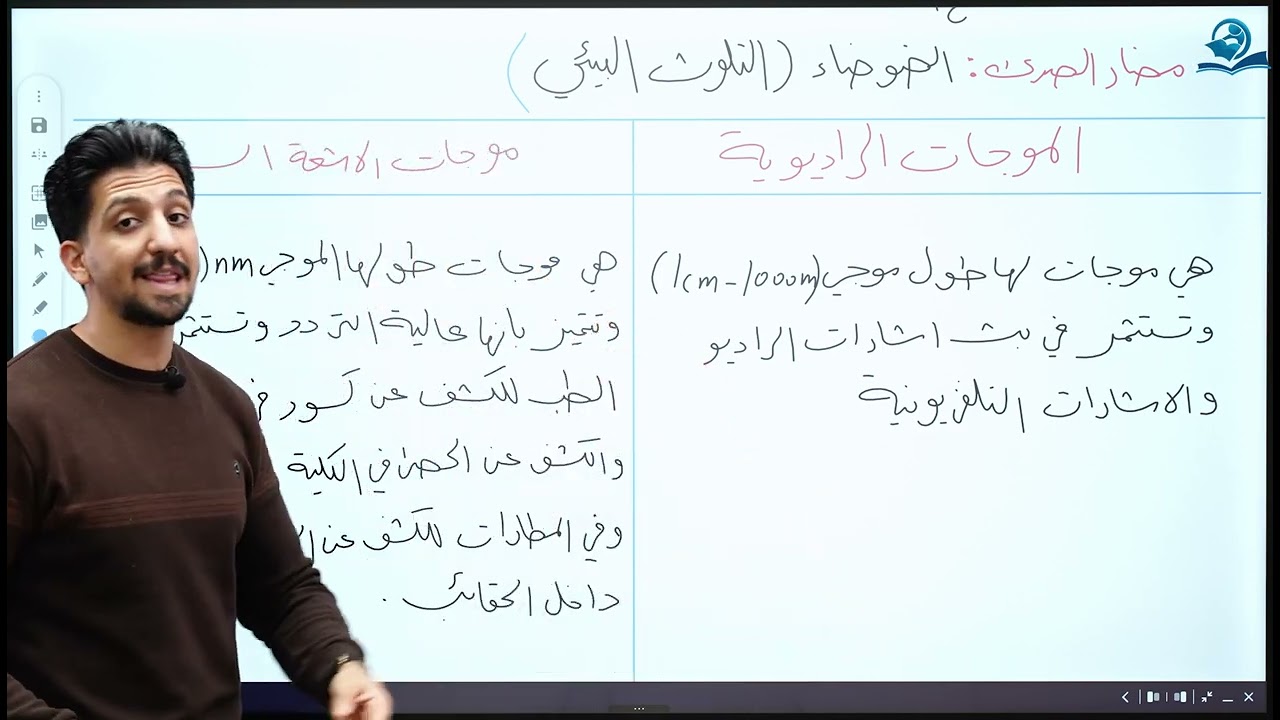 مضار الصدى: الضوضاء (التلوث البيئي)
الموجات الراديوية
هي موجات لها طول موجي (1cm-1000m)
وتستثمر في بث اشارات الراديو
والاشارات التلفزيونية
موجات الاشعة الس
هي موجات طولها الموجي nm(
وتتميز بانها عالية التردد وتستثمر
الطب للكشف عن كسور
والكشف عن الحصى في الكلية
وفي المطارات للكشف عن
داخل الحقائب .